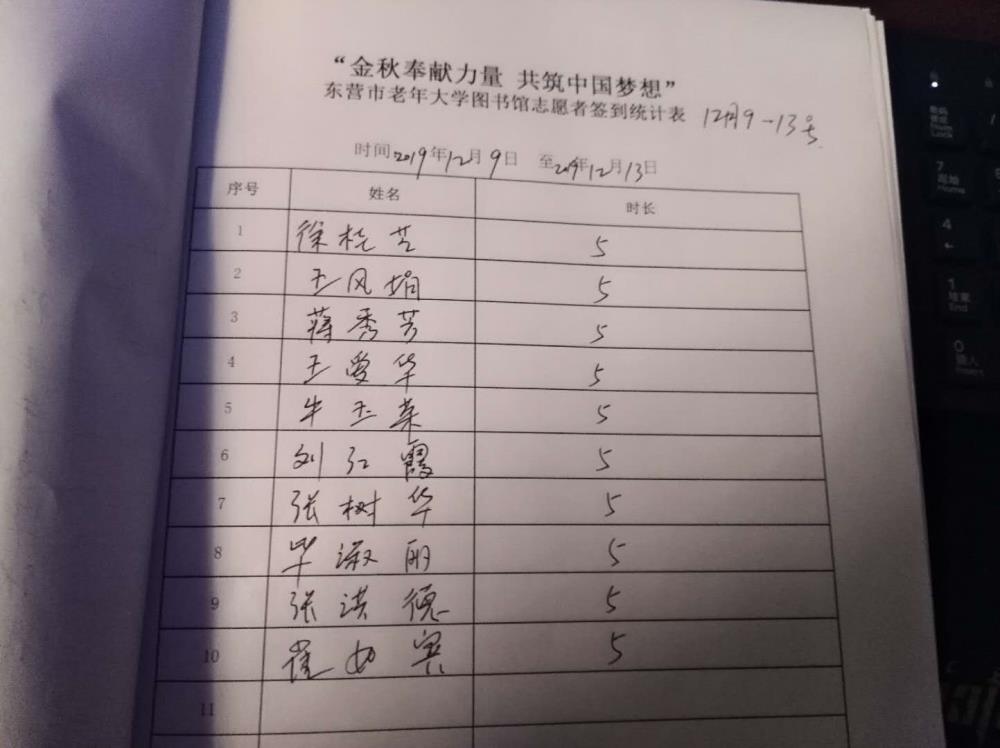 “金秋奉献力量 共筑中国梦想”
东营市老年大学图书馆志愿者签到统计表 12月9-13号
时间2019年12月9日 至2019年12月13日
序号 姓名 时长
1 徐桂芝 5
2 王风娟 5
3 蒋秀芳 5
4 王爱华 5
5 牛玉荣 5
6 刘红霞 5
7 张树华 5
8 毕淑丽 5
9 张洪德 5
10 崔 5
11
7
Home
4
←
1
End
0